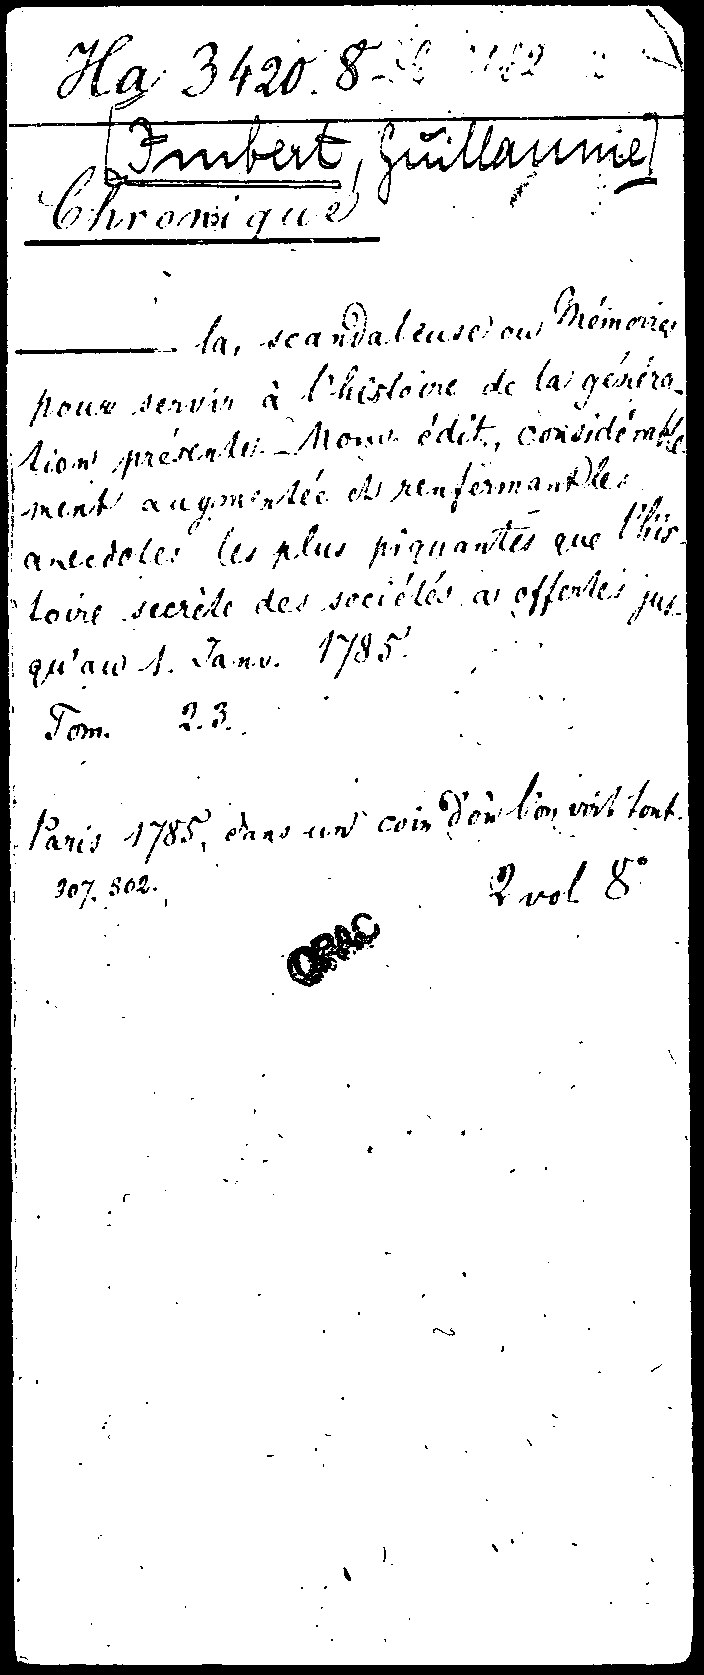 Ha 3420. 8
[Imbert, Guillaume]
Chronique
la, scandaleuse ou Mémoires
pour servir à l'histoire de la généra-
tion présente. Nouv. édit., considérable-
ment augmentée et renfermant les
anecdotes les plus piquantes que l'his-
toire secrète des sociétés a offertes jus-
qu'au 1. Janv. 1785.
Tom. 2.3.
Paris 1785, dans un coin d'où l'on voit tout.
307. 302.
2 vol 8°
OPAC